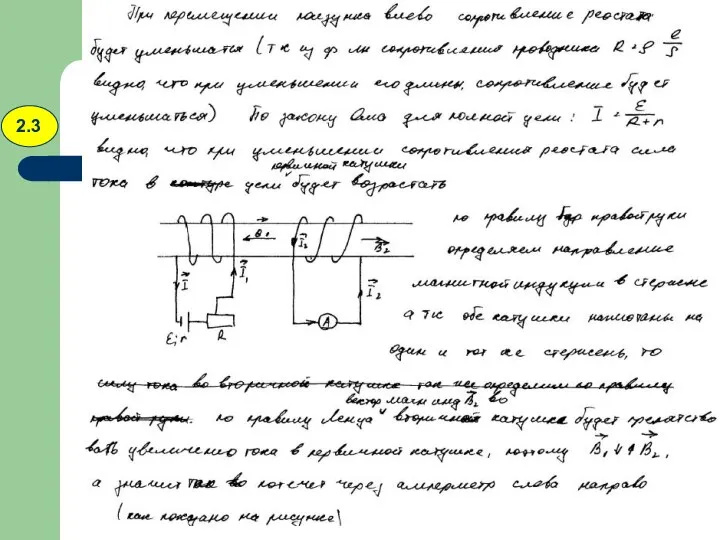 При перемещении ползунка влево сопротивление реостата
2.3
будет уменьшатся (т к из ф лы сопротивления проводника R = ρ l/S
видно, что при уменьшении его длины, сопротивление будет
уменьшаться) По закону Ома для полной цепи: I = ℰ/(R+r)
видно, что при уменьшении сопротивления реостата сила
первичной катушки
тока в контуре цепи будет возрастать
по правилу бур правой руки
B₁ I₂ B₂
определяем направление
I I₁ I₂
магнитной индукции в стержне
ℰ;r R A
а т.к обе катушки намотаны на
один и тот же стержень, то
силу тока во вторичной катушке так же определим по правилу
вектор магн инд B₂ во
правой руки. по правилу Ленца вторичной катушке будет препятство
вать увеличению тока в первичной катушке, поэтому B₁↓↑B₂,
а значит ток во потечет через амперметр слева направо
(как показано на рисунке)